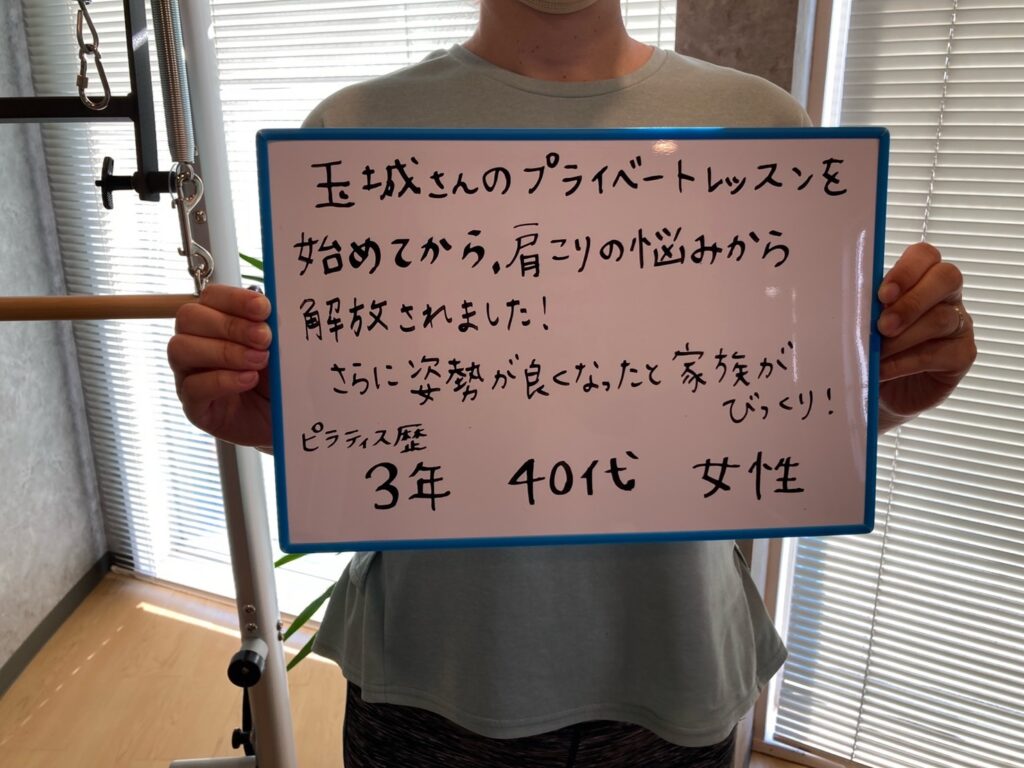 玉城さんのプライベートレッスンを
始めてから、肩こりの悩みから
解放されました!
さらに姿勢が良くなったと家族が
びっくり!
ピラティス歴
3年 40代 女性